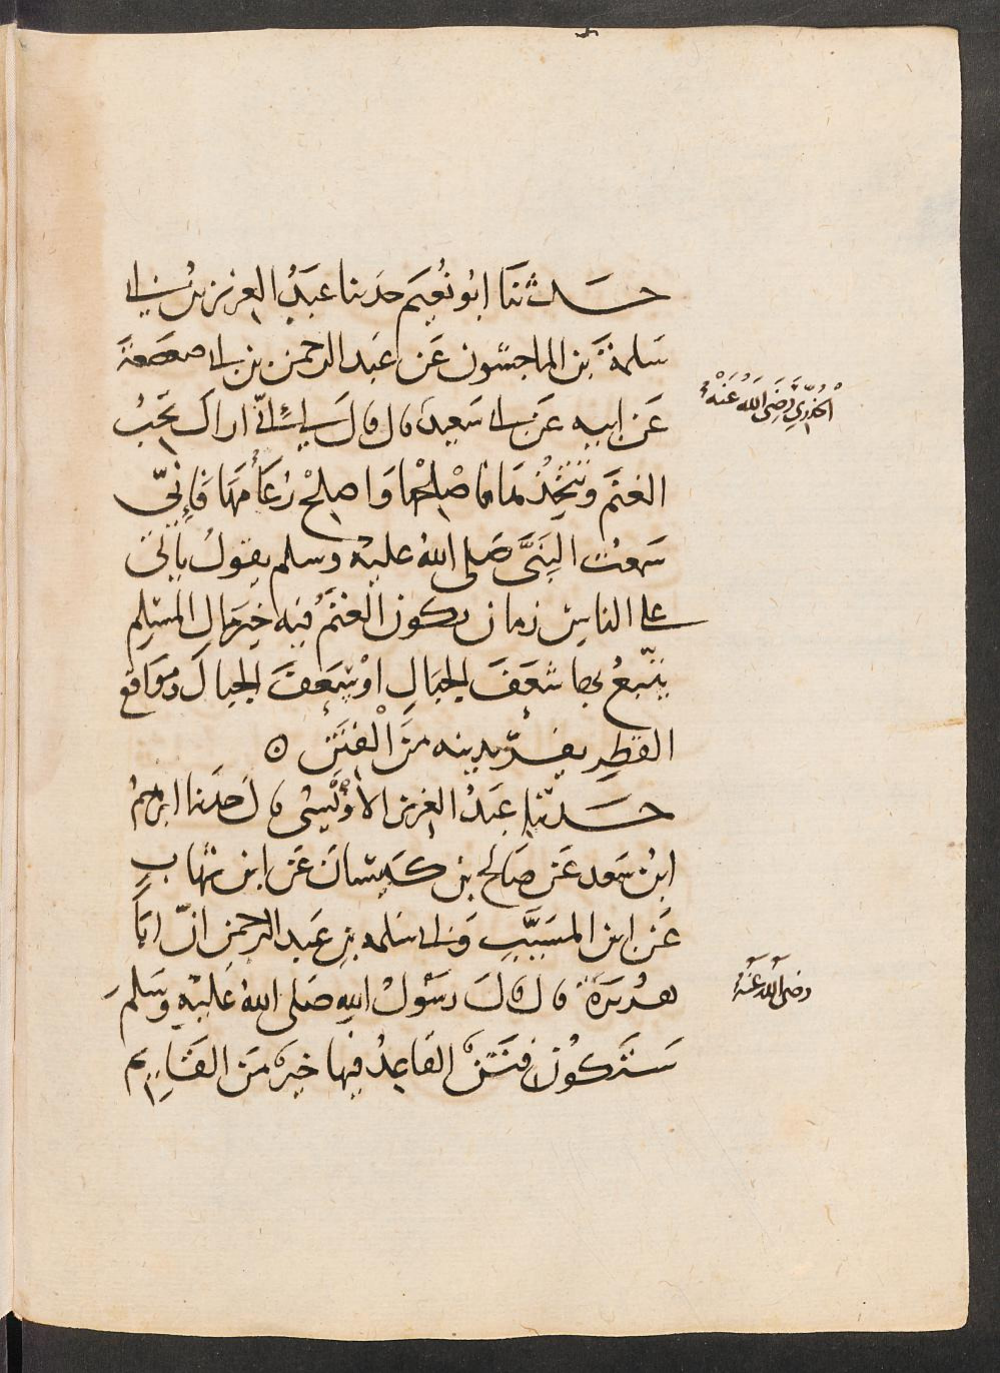 حدثنا ابو نعيم حدثنا عبد العزيز بن ابي
سلمة بن الماجشون عن عبد الرحمن بن ابي صعصعة
عن ابيه عن ابي سعيد قال قال لي اني اراك تحب
الخدري رضي الله عنه
الغنم وتتخذها فاصلحها واصلح رعامها فاني
سمعت النبي صلى الله عليه وسلم يقول يأتي
على الناس زمان تكون الغنم فيه خير مال المسلم
يتبع بها شعف الجبال او سعف الجبال ومواقع
القطر يفر بدينه من الفتن ه
حدثنا عبد العزيز الاويسي قال حدثنا ابرهيم
ابن سعد عن صالح بن كيسان عن ابن شهاب
عن ابن المسيب وابي سلمه بن عبد الرحمن ان ابا
هريرة قال قال رسول الله صلى الله عليه وسلم
رضي الله عنه
ستكون فتن القاعد فيها خير من القايم